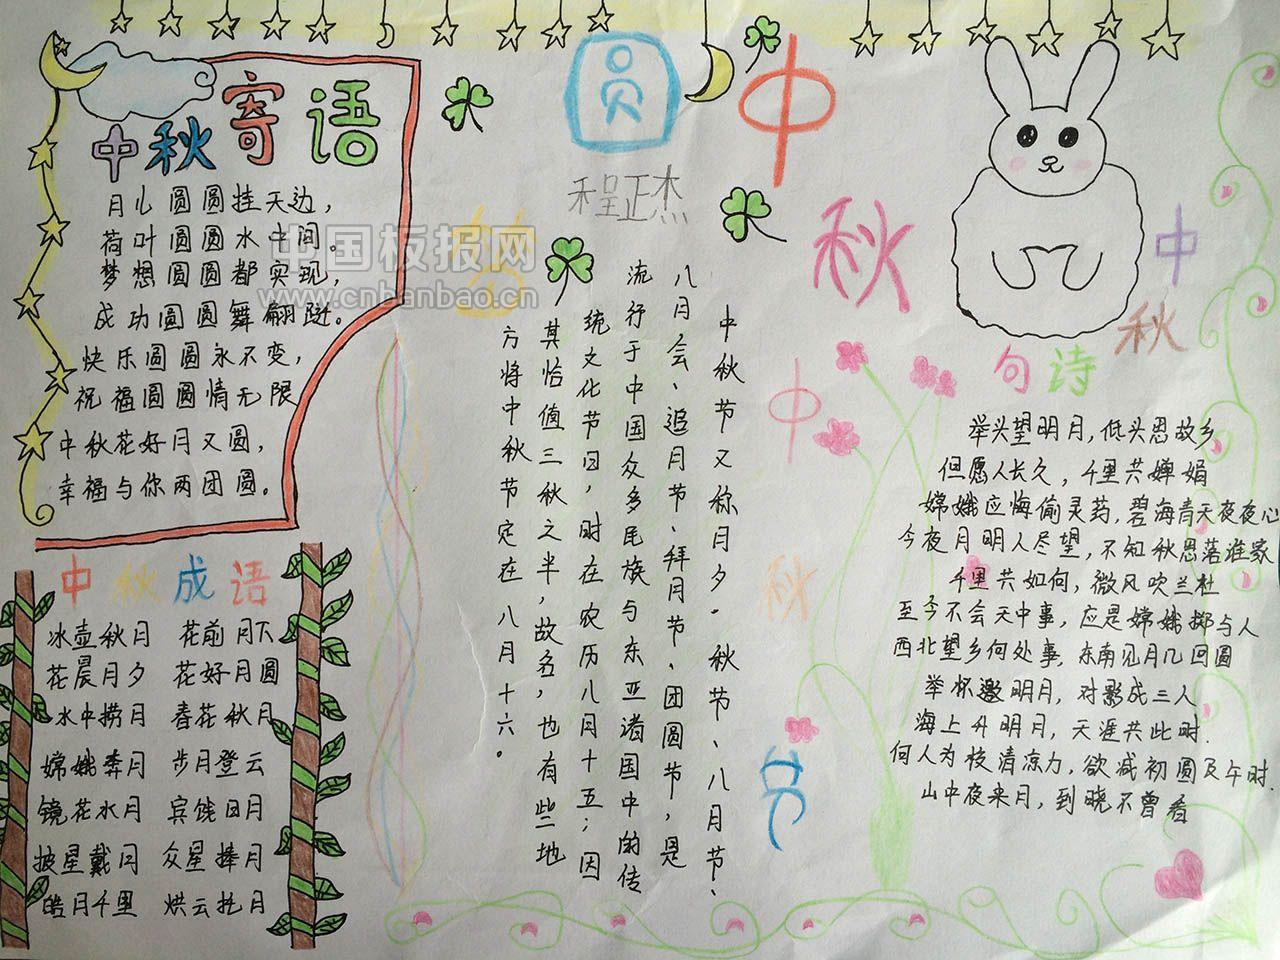 中秋寄语
月儿圆圆挂天边，
荷叶圆圆水中间。
梦想圆圆都实现，
成功圆圆舞翩跹。
快乐圆圆永不变，
祝福圆圆情无限
中秋花好月又圆，
幸福与你两团圆。
中国板报网
www.cnbanbao.cn
中秋成语
冰壶秋月 花前月下
花晨月夕 花好月圆
水中捞月 春花秋月
嫦娥奔月 步月登云
镜花水月 宾饯日月
披星戴月 众星捧月
皓月千里 烘云托月
圆
程正杰
中秋节又称月夕·秋节、八月节、
八月会、追月节、拜月节、团圆节，是
流行于中国众多民族与东亚诸国中的传
统文化节日，时在农历八月十五；因
其恰值三秋之半，故名，也有些地
方将中秋节定在八月十六。
中秋
中秋节
中秋
句诗
举头望明月，低头思故乡
但愿人长久，千里共婵娟
嫦娥应悔偷灵药，碧海青天夜夜心
今夜月明人尽望，不知秋思落谁家
千里共如何，微风吹兰杜
至今不会天中事，应是嫦娥掷与人
西北望乡何处事，东南见月几回圆
举杯邀明月，对影成三人
海上升明月，天涯共此时.
何人为校清凉力，欲减初圆及午时.
山中夜来月，到晓不曾看